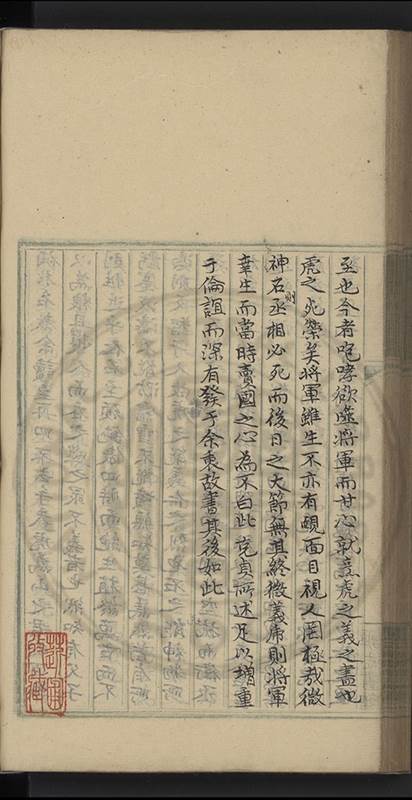 至也今者咆哮欲噬將軍而甘心就烹虎之義之盡也
虎之死榮矣將軍雖生不亦有靦面目視人罔極哉微
神名則丞相必死而後日之大節無其終微義虎則將軍
幸生而當時賣國之心為不白此克貞所述足以增重
于倫誼而深有發于余衷故書其後如此